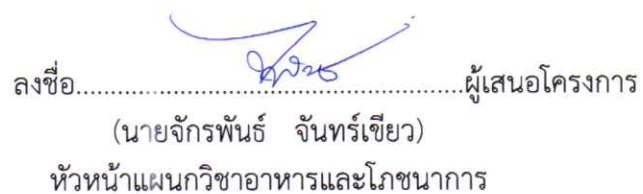 ลงชื่อ....................................................ผู้เสนอโครงการ
(นายจักรพันธ์ จันทร์เขียว)
หัวหน้าแผนกวิชาอาหารและโภชนาการ